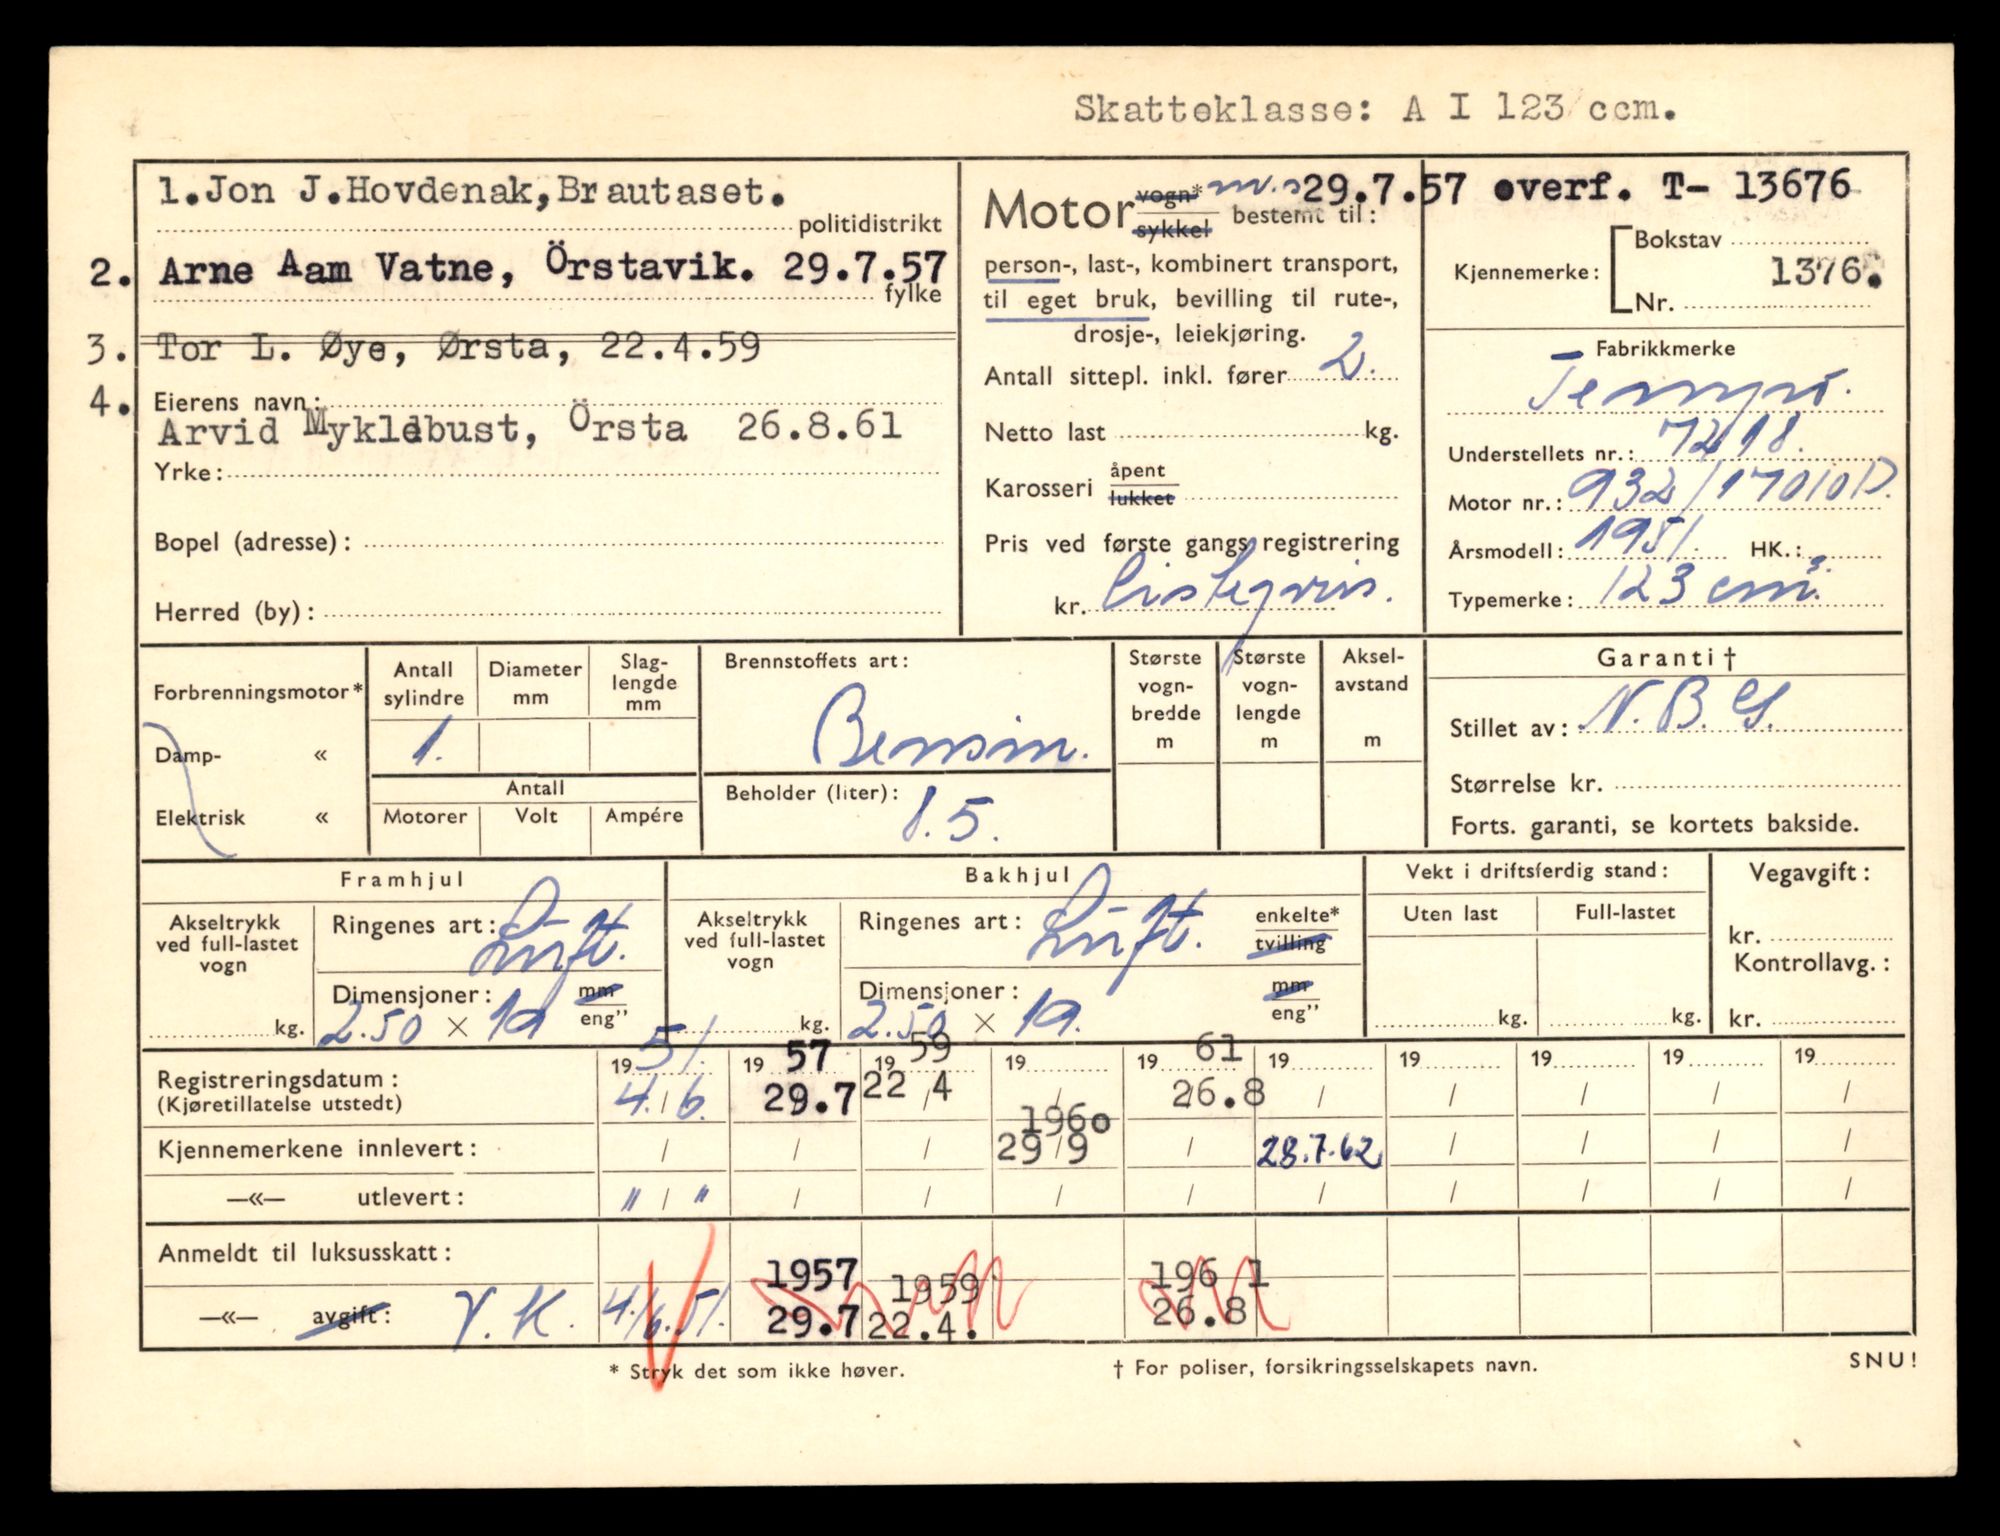 Skatteklasse: A I 123 ccm.
1. Jon J. Hovdenak, Brautaset.
politidistrikt
2. Arne Aam Vatne, Örstavik. 29.7.57
fylke
3. Tor L. Øye, Ørsta, 22.4.59
4. Eierens navn:
Arvid Myklebust, Örsta 26.8.61
Yrke:
Bopel (adresse):
Herred (by):
Motor vogn* sykkel bestemt til:
29.7.57 overf. T- 13676
person-, last-, kombinert transport,
til eget bruk, bevilling til rute-,
drosje-, leiekjøring.
Antall sittepl. inkl. fører 2.
Netto last kg.
Karosseri åpent lukket
Pris ved første gangs registrering
kr. Listepris.
Kjennemerke: Bokstav
Nr. 1376.
Fabrikkmerke
Tempo.
Understellets nr.: 7218.
Motor nr.: 932/17010D.
Årsmodell: 1951. HK.:
Typemerke: 123 cm³.
Forbrenningsmotor*
Damp- «
Elektrisk «
Antall sylindre 1.
Diameter mm
Slag-lengde mm
Antall
Motorer Volt Ampére
Brennstoffets art:
Bensin.
Beholder (liter): 8.5.
Største vogn-bredde m
Største vogn-lengde m
Aksel-avstand m
Garanti †
Stillet av: N.B.G.
Størrelse kr.
Forts. garanti, se kortets bakside.
Framhjul
Akseltrykk ved full-lastet vogn
kg.
Ringenes art: Luft.
Dimensjoner: mm eng"
2.50 × 19
Bakhjul
Akseltrykk ved full-lastet vogn
kg.
Ringenes art: Luft. enkelte* tvilling
Dimensjoner: mm eng"
2.50 × 19.
Vekt i driftsferdig stand:
Uten last Full-lastet
kg. kg.
Vegavgift:
kr.
Kontrollavg.:
kr.
19 51. 19 57 19 59 19 19 61 19 19 19 19 19
Registreringsdatum: 4./6. 29.7 22/4 / 26.8 / / / / /
(Kjøretillatelse utstedt)
1960
Kjennemerkene innlevert: / / / 29/9 / 28.7.62 / / / /
—«— utlevert: " / " / / / / / / / / /
Anmeldt til luksusskatt: 1957 1959 1961
—«— avgift: V.K. 4/6.51. 29.7 22.4. 26.8
* Stryk det som ikke høver.
† For poliser, forsikringsselskapets navn.
SNU!